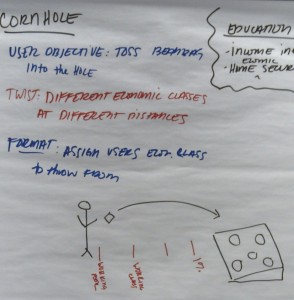 CORNHOLE
USER OBJECTIVE: TOSS BEANBAG
INTO the HOLE
TWIST: DIFFERENT ECONOMIC CLASSES
AT DIFFERENT DISTANCES
FORMAT: ASSIGN USERS ECON. CLASS
to throw FROM
EDUCATION
- INCOME
- HOME
WORKING
WORKING
1%